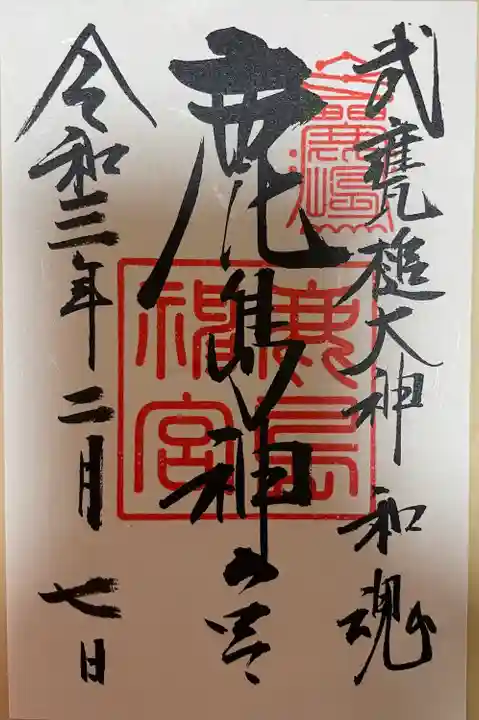 武甕槌大神 和魂
鹿島神宮
鹿島神宮
令和三年二月七日